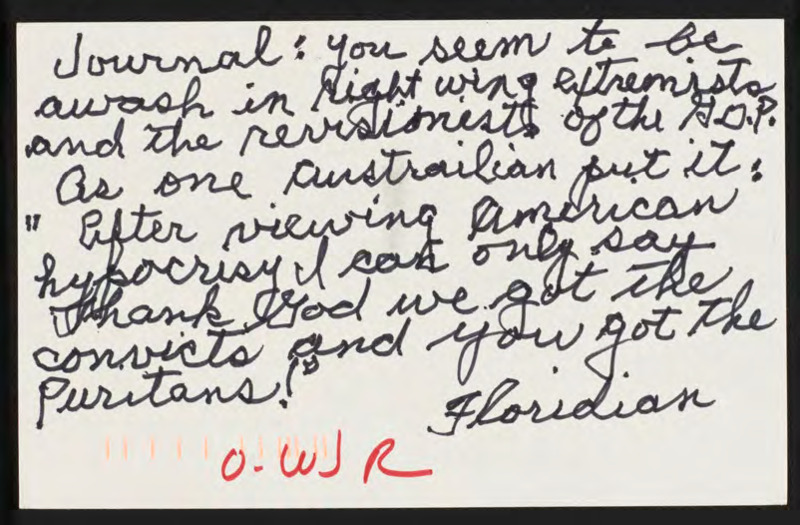 Journal: you seem to be
awash in Right wing extremists
and the revisionists of the G.O.P.
As one Austrailian put it:
"After viewing American
hypocrisy I can only say
Thank God we got the
convicts and you got the
Puritans!"
Floridian
O-WJR